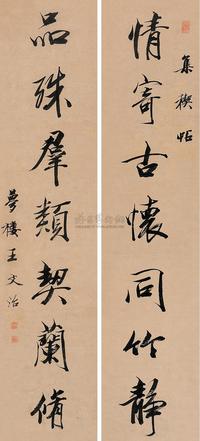 集禊帖
情寄古懷同竹静
品殊羣類契蘭脩
夢樓王文治